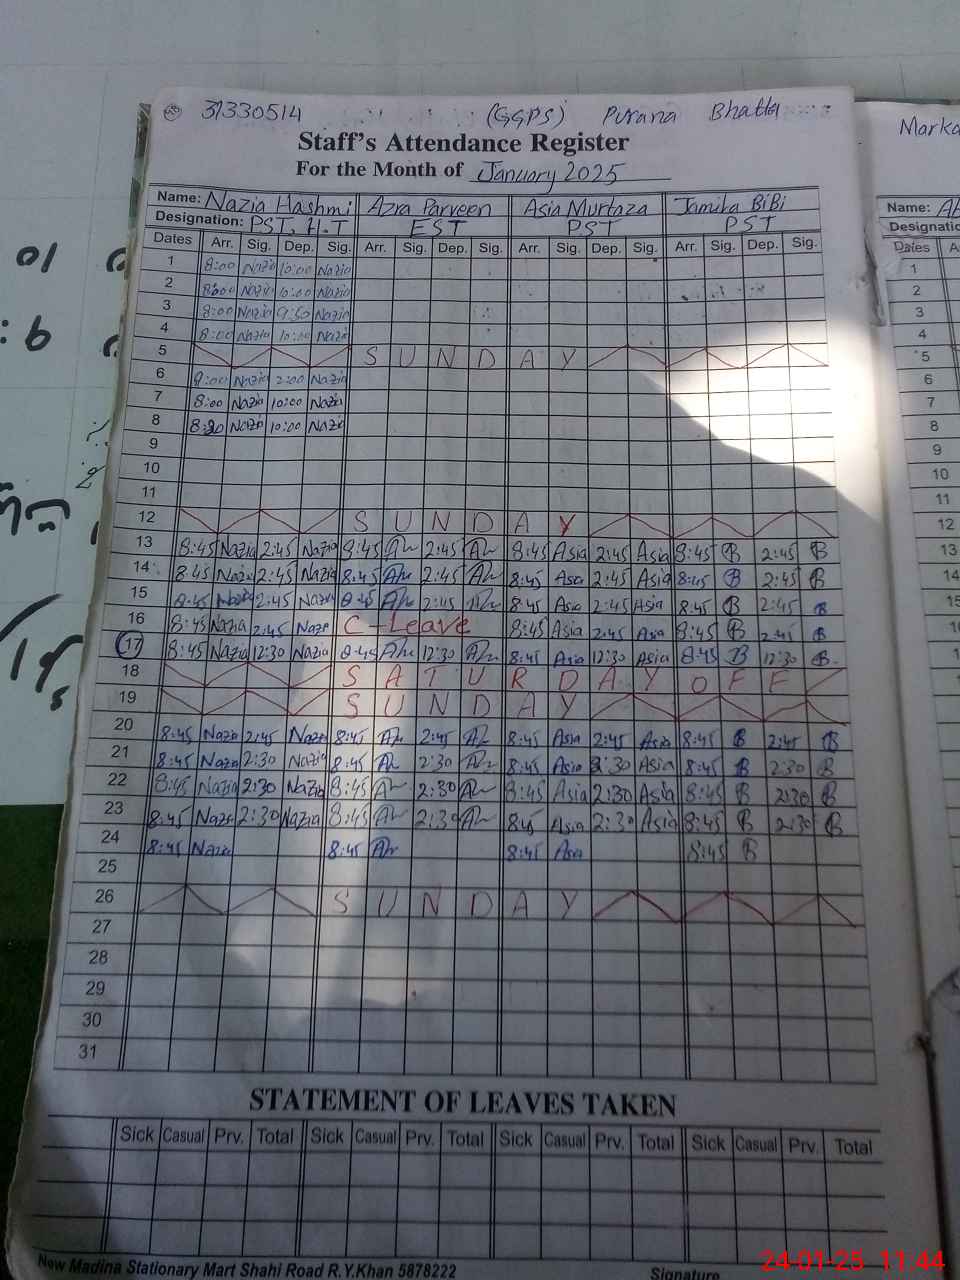 31330514 (GGPS) Purana Bhatta
Staff's Attendance Register
For the Month of January 2025
Name: Nazia Hashmi Azra Parveen Asia Murtaza Jamila BiBi
Designation: PST, H.T EST PST PST
Dates Arr. Sig. Dep. Sig. Arr. Sig. Dep. Sig. Arr. Sig. Dep. Sig. Arr. Sig. Dep. Sig.
1 8:00 Nazia 10:00 Nazia
2 8:00 Nazia 10:00 Nazia
3 8:00 Nazia 9:50 Nazia
4 8:00 Nazia 10:00 Nazia
5 SUNDAY
6 8:00 Nazia 2:00 Nazia
7 8:00 Nazia 10:00 Nazia
8 8:20 Nazia 10:00 Nazia
9
10
11
12 SUNDAY
13 8:45 Nazia 2:45 Nazia 8:45 2:45 8:45 Asia 2:45 Asia 8:45 B 2:45 B
14 8:45 Nazia 2:45 Nazia 8:45 2:45 8:45 Asia 2:45 Asia 8:45 B 2:45 B
15 8:45 Nazia 2:45 Nazia 8:45 2:45 8:45 Asia 2:45 Asia 8:45 B 2:45 B
16 8:45 Nazia 2:45 Nazia C-Leave 8:45 Asia 2:45 Asia 8:45 B 2:45 B
17 8:45 Nazia 12:30 Nazia 8:45 12:30 8:45 Asia 12:30 Asia 8:45 B 12:30 B
18 SATURDAY OFF
19 SUNDAY
20 8:45 Nazia 2:45 Nazia 8:45 2:45 8:45 Asia 2:45 Asia 8:45 B 2:45 B
21 8:45 Nazia 2:30 Nazia 8:45 2:30 8:45 Asia 2:30 Asia 8:45 B 2:30 B
22 8:45 Nazia 2:30 Nazia 8:45 2:30 8:45 Asia 2:30 Asia 8:45 B 2:30 B
23 8:45 Nazia 2:30 Nazia 8:45 2:30 8:45 Asia 2:30 Asia 8:45 B 2:30 B
24 8:45 Nazia 8:45 8:45 Asia 8:45 B
25
26 SUNDAY
27
28
29
30
31
STATEMENT OF LEAVES TAKEN
Sick Casual Prv. Total Sick Casual Prv. Total Sick Casual Prv. Total Sick Casual Prv. Total
New Madina Stationary Mart Shahi Road R.Y.Khan 5878222 Signature
Name:
Dates
1
2
3
4
5
6
7
8
9
10
11
12
13
14
24-01-25 11:44